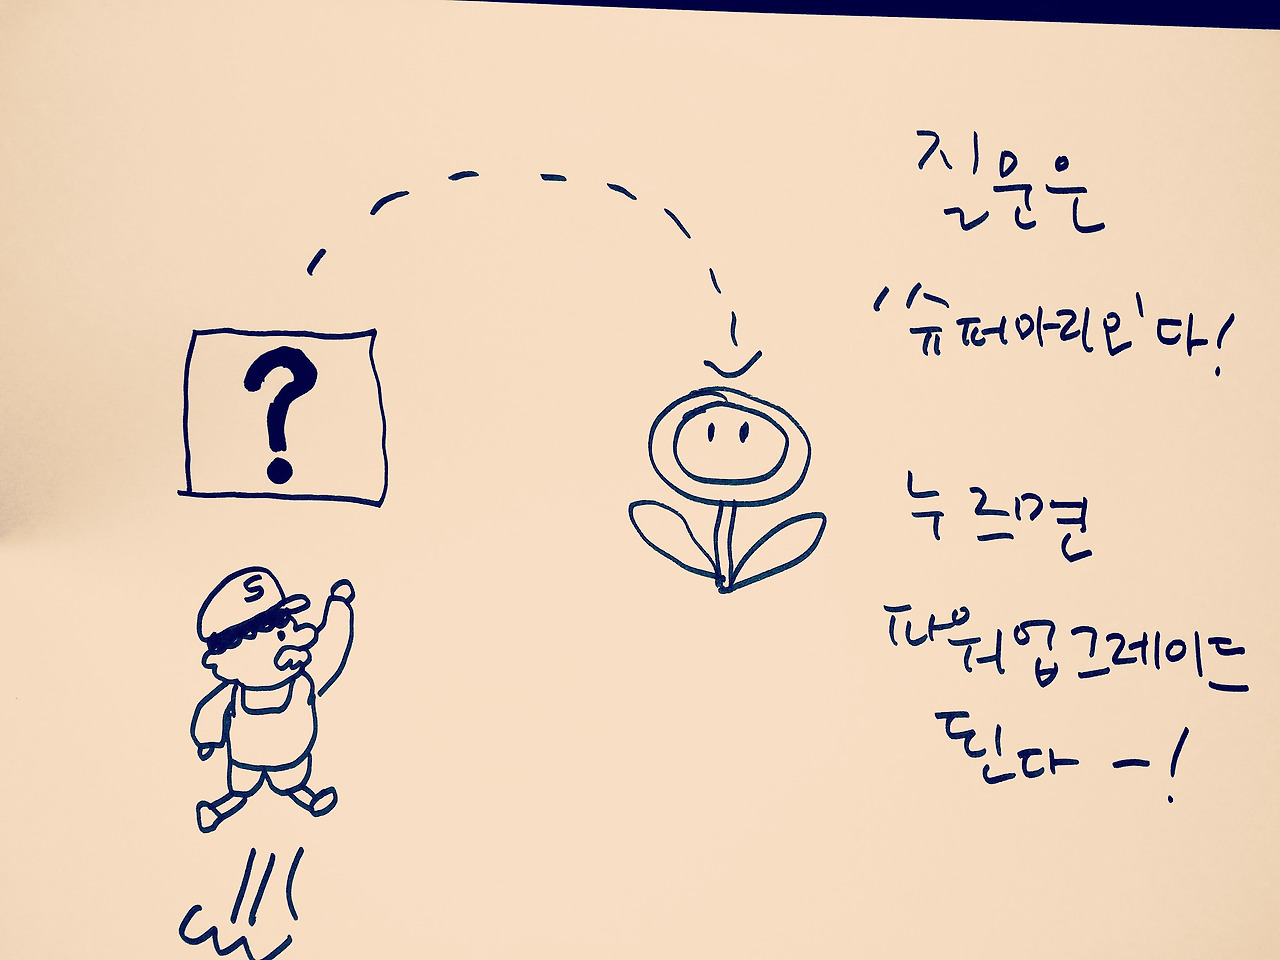 ?
S
질문은
"슈퍼마리오'다!
누르면
파워업그레이드
된다 -!